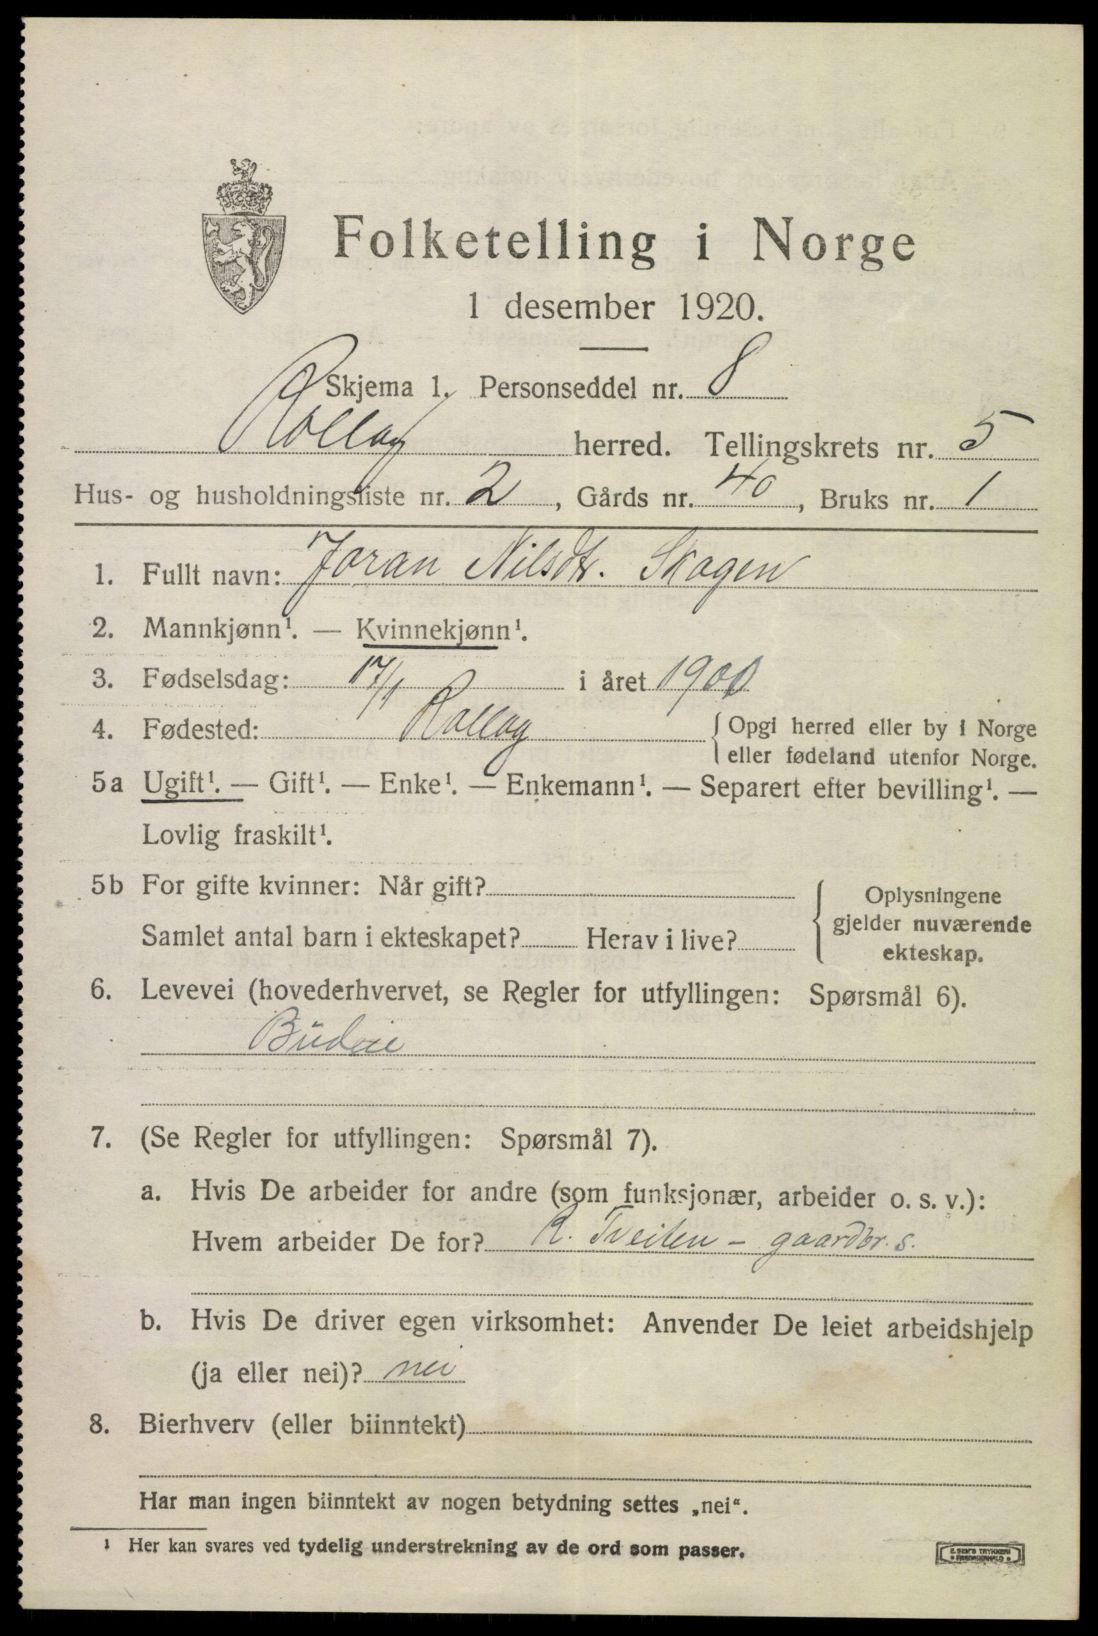 Folketelling i Norge
1 desember 1920.
Skjema 1. Personseddel nr. 8
Rollag herred. Tellingskrets nr. 5
Hus- og husholdningsliste nr. 2, Gårds nr. 40, Bruks nr. 1
1. Fullt navn: Joran Nilsdtr. Skogen
2. Mannkjønn¹. — Kvinnekjønn¹.
3. Fødselsdag: 17/1 i året 1900
4. Fødested: Rollag { Opgi herred eller by i Norge
eller fødeland utenfor Norge.
5a Ugift¹. — Gift¹. — Enke¹. — Enkemann¹. — Separert efter bevilling¹. —
Lovlig fraskilt¹.
5b For gifte kvinner: Når gift?
Samlet antal barn i ekteskapet? Herav i live?
{ Oplysningene
gjelder nuværende
ekteskap.
6. Levevei (hovederhvervet, se Regler for utfyllingen: Spørsmål 6).
Budeie
7. (Se Regler for utfyllingen: Spørsmål 7).
a. Hvis De arbeider for andre (som funksjonær, arbeider o. s. v.):
Hvem arbeider De for? R. Tveiten – gaardbr. s.
b. Hvis De driver egen virksomhet: Anvender De leiet arbeidshjelp
(ja eller nei)? nei
8. Bierhverv (eller biinntekt)
Har man ingen biinntekt av nogen betydning settes „nei“.
¹ Her kan svares ved tydelig understrekning av de ord som passer.